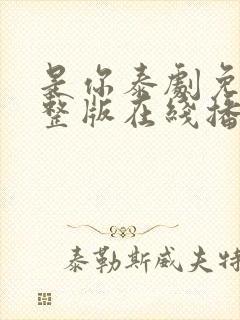 是你泰劇免
整版在綫播
泰勒斯威夫特